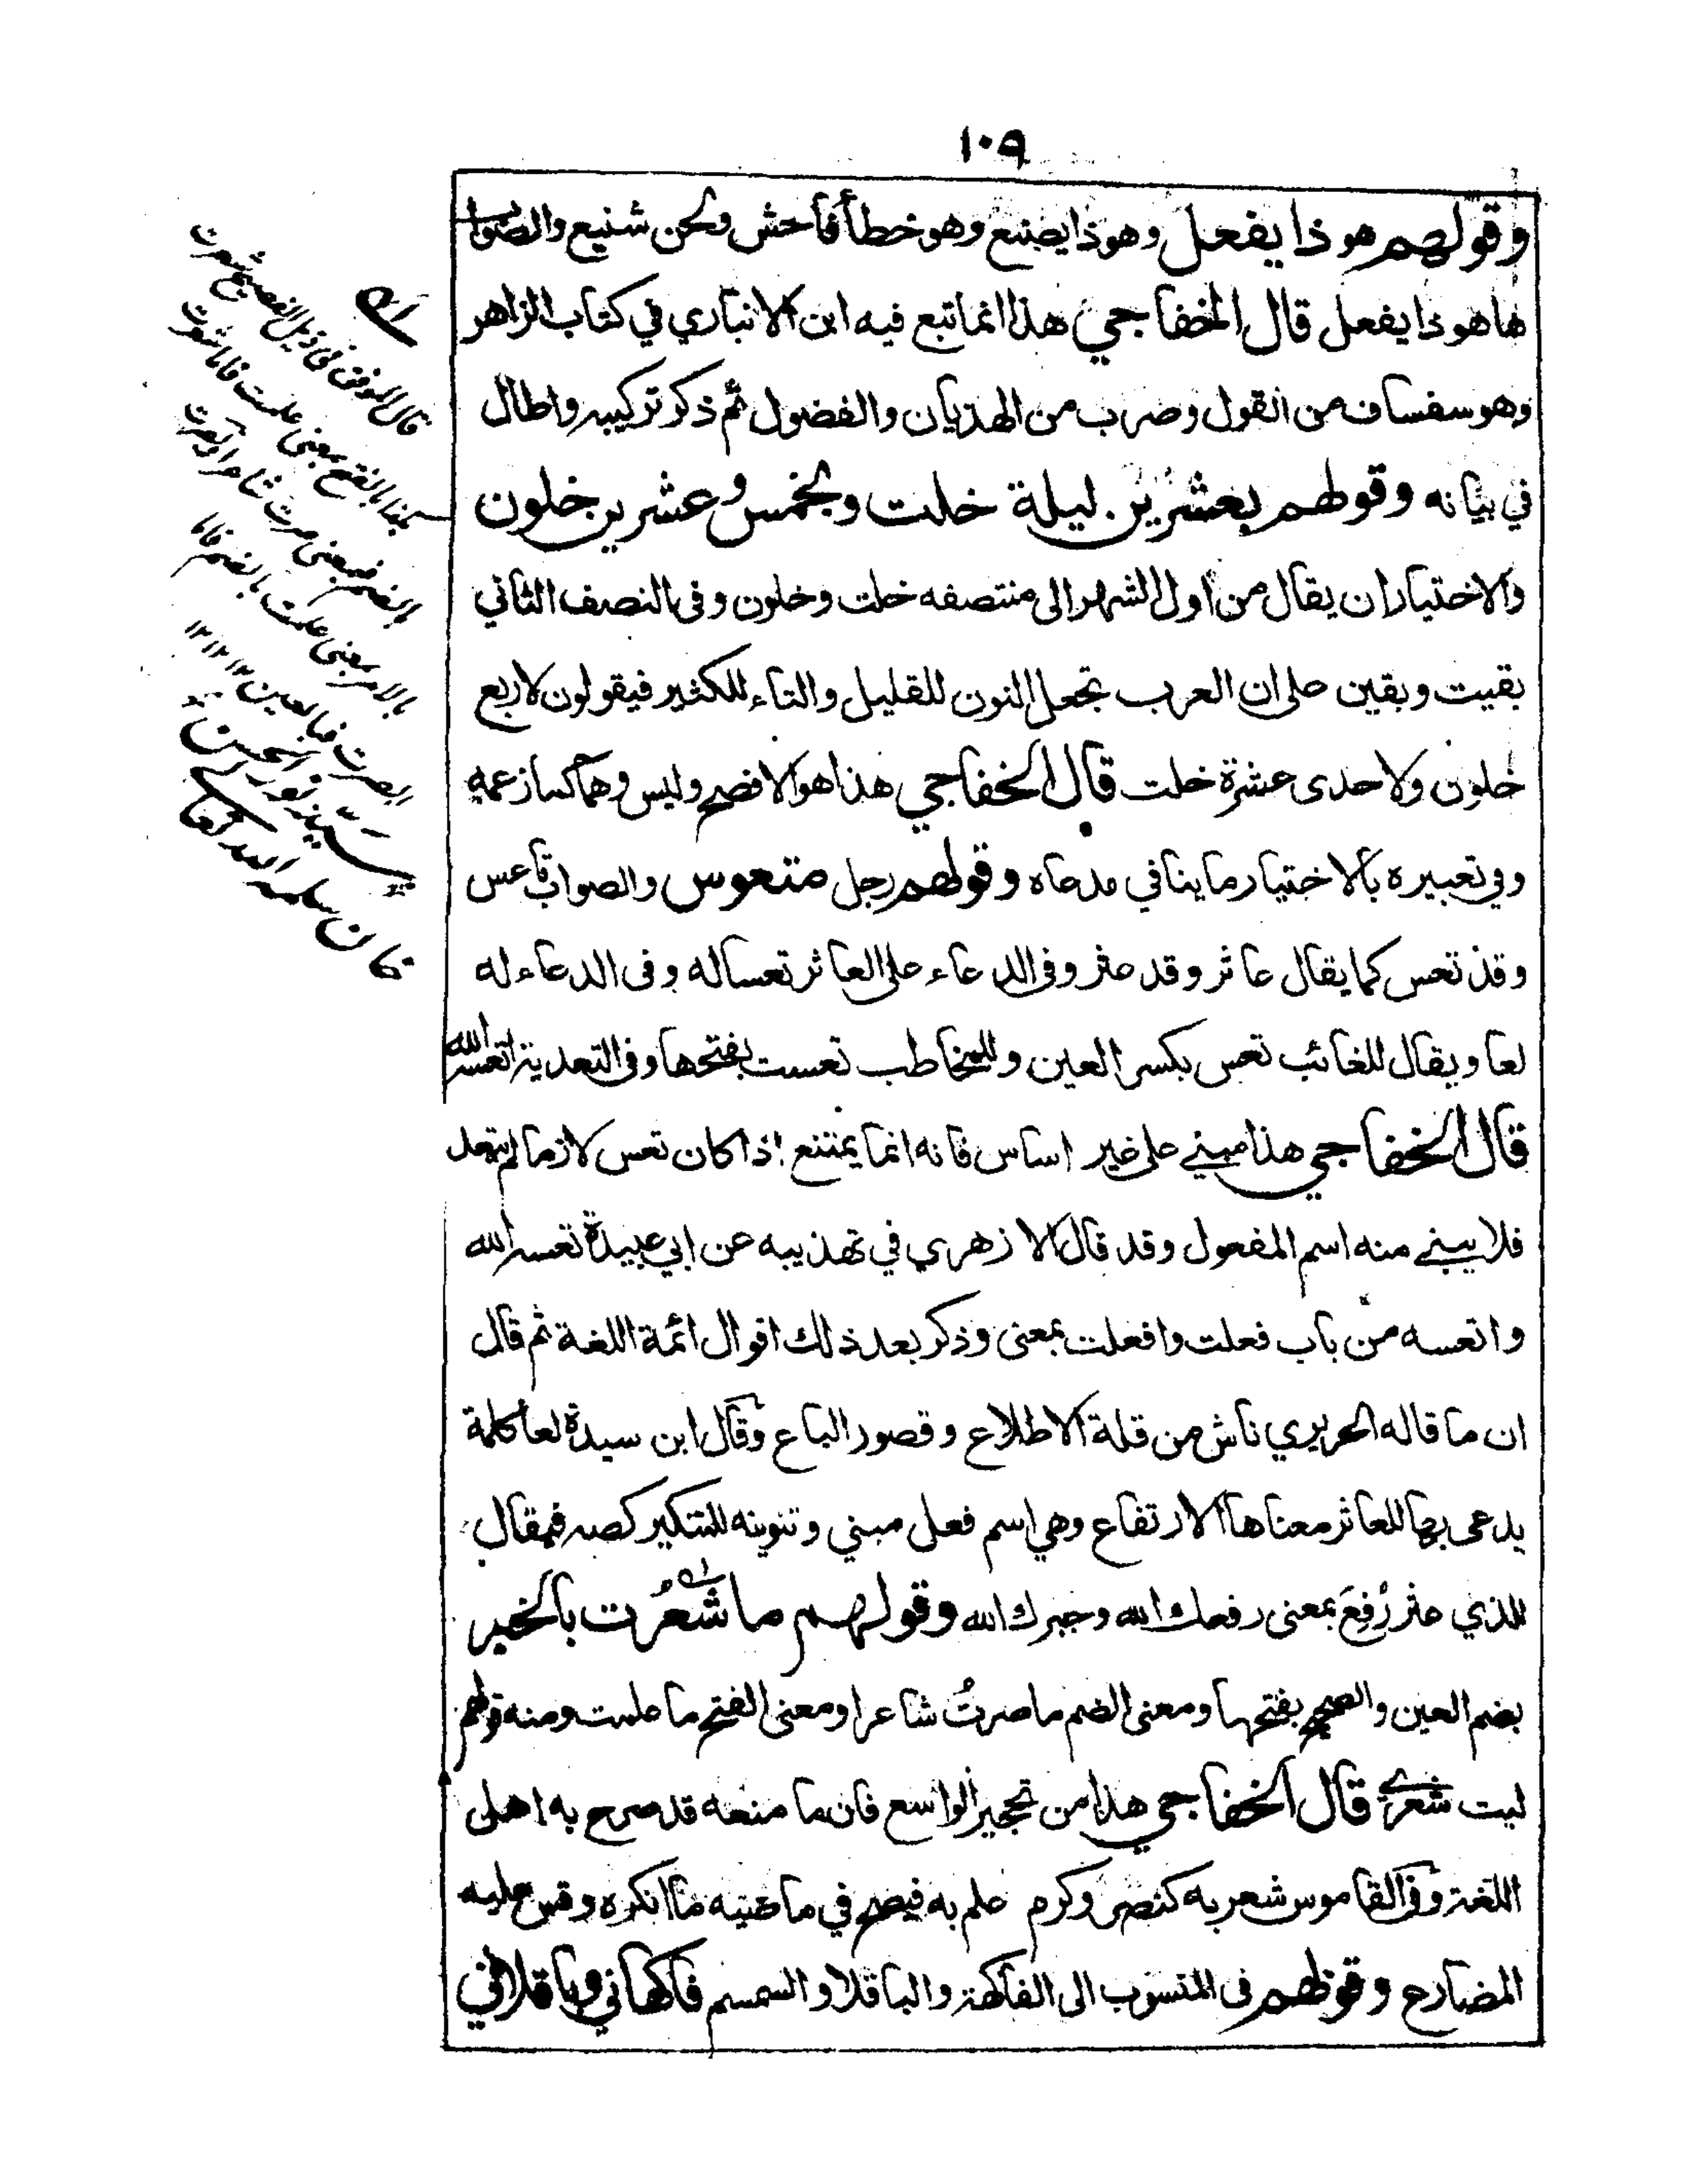 ١٠٩
وقولهم هو ذا يفعل وهو ذا يصنع وهو خطأ فاحش ولحن شنيع والصواب
ها هو ذا يفعل قال الخفاجي هذا انما تبع فيه ابن الانباري في كتاب الزاهر
وهو سفساف من القول وضرب من الهذيان والفضول ثم ذكر تركيبه واطال
في بيانه وقولهم بعشرين ليلة خلت وبخمس وعشرين خلون
والاختيار ان يقال من اول الشهر الى منتصفه خلت وخلون وفى النصف الثاني
بقيت وبقين على ان العرب تجعل النون للقليل والتاء للكثير فيقولون لاربع
خلون ولاحدى عشرة خلت قال الخفاجي هذا هو الافصح وليس وهما كما زعمه
وفي تعبيره بالاختيار ما ينافي مدعاه وقولهم رجل متعوس والصواب تاعس
وقد تعس كما يقال عاثر وقد عثر وفى الدعاء على العاثر تعسا له وفى الدعاء له
لعا ويقال للغائب تعس بكسر العين وللمخاطب تعست بفتحها وفى التعدية اتعسه الله
قال الخفاجي هذا مبني على غير اساس فانه انما يمتنع اذا كان تعس لازما لم يتعد
فلا يبنى منه اسم المفعول وقد قال الازهري في تهذيبه عن ابي عبيدة تعسه الله
واتعسه من باب فعلت وافعلت بمعنى وذكر بعد ذلك اقوال ائمة اللغة ثم قال
ان ما قاله الحريري ناش من قلة الاطلاع وقصور الباع وقال ابن سيدة لعا كلمة
يدعى بها للعاثر معناها الارتفاع وهي اسم فعل مبني وتنوينه للتنكير كصه فيقال
للذي عثر رُفِعَ بمعنى رفعك الله وجبرك الله وقولهم ما شعُرت بالخبر
بضم العين والصحيح بفتحها ومعنى الضم ما صرتُ شاعرا ومعنى الفتح ما علمت ومنه قولهم
ليت شعري قال الخفاجي هذا من تحجير الواسع فان ما منعه قد صرح به اهل
اللغة وفى القاموس شعر به كنصر وكرم علم به فيصح في ماضيه ما انكره وقس عليه
المضارع وقولهم فى المنسوب الى الفاكهة والباقلا والسمسم فاكهاني وباقلاني
قال الموفق فى ذيل الفصيح شعرت
بهذا بالفتح بمعنى علمت فاما شعرت
بالضم فبمعنى صرت شاعرا وبصرت
بالامر بمعنى علمت بالضم فاما
ابصرت فبالعين ١٢ ١٢ ١٢
سيد نور الحسن
خان سلمه الله تعالى